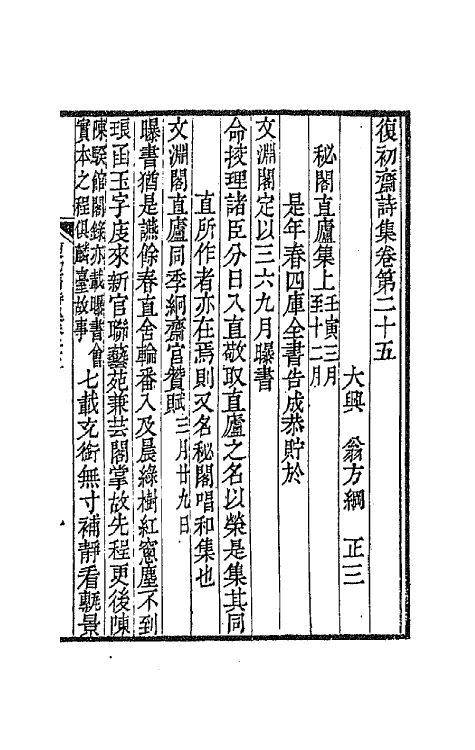 復初齋詩集卷第二十五
大興 翁方綱 正三
秘閣直廬集上 壬寅三月至十二月
是年春四庫全書告成恭貯於
文淵閣定以三六九月曝書
命挍理諸臣分日入直敬取直廬之名以榮是集其同
直所作者亦在焉則又名秘閣唱和集也
文淵閣直廬同季絅齋官贊賦 三月廿九日
曝書猶是讌餘春直舍輪番入及晨綠樹紅窻塵不到
琅函玉字庋來新官聯藝苑兼芸閣掌故先程更後陳
陳騤館閣錄亦載曝書會實本之程俱麟臺故事 七載充銜無寸補靜看
景